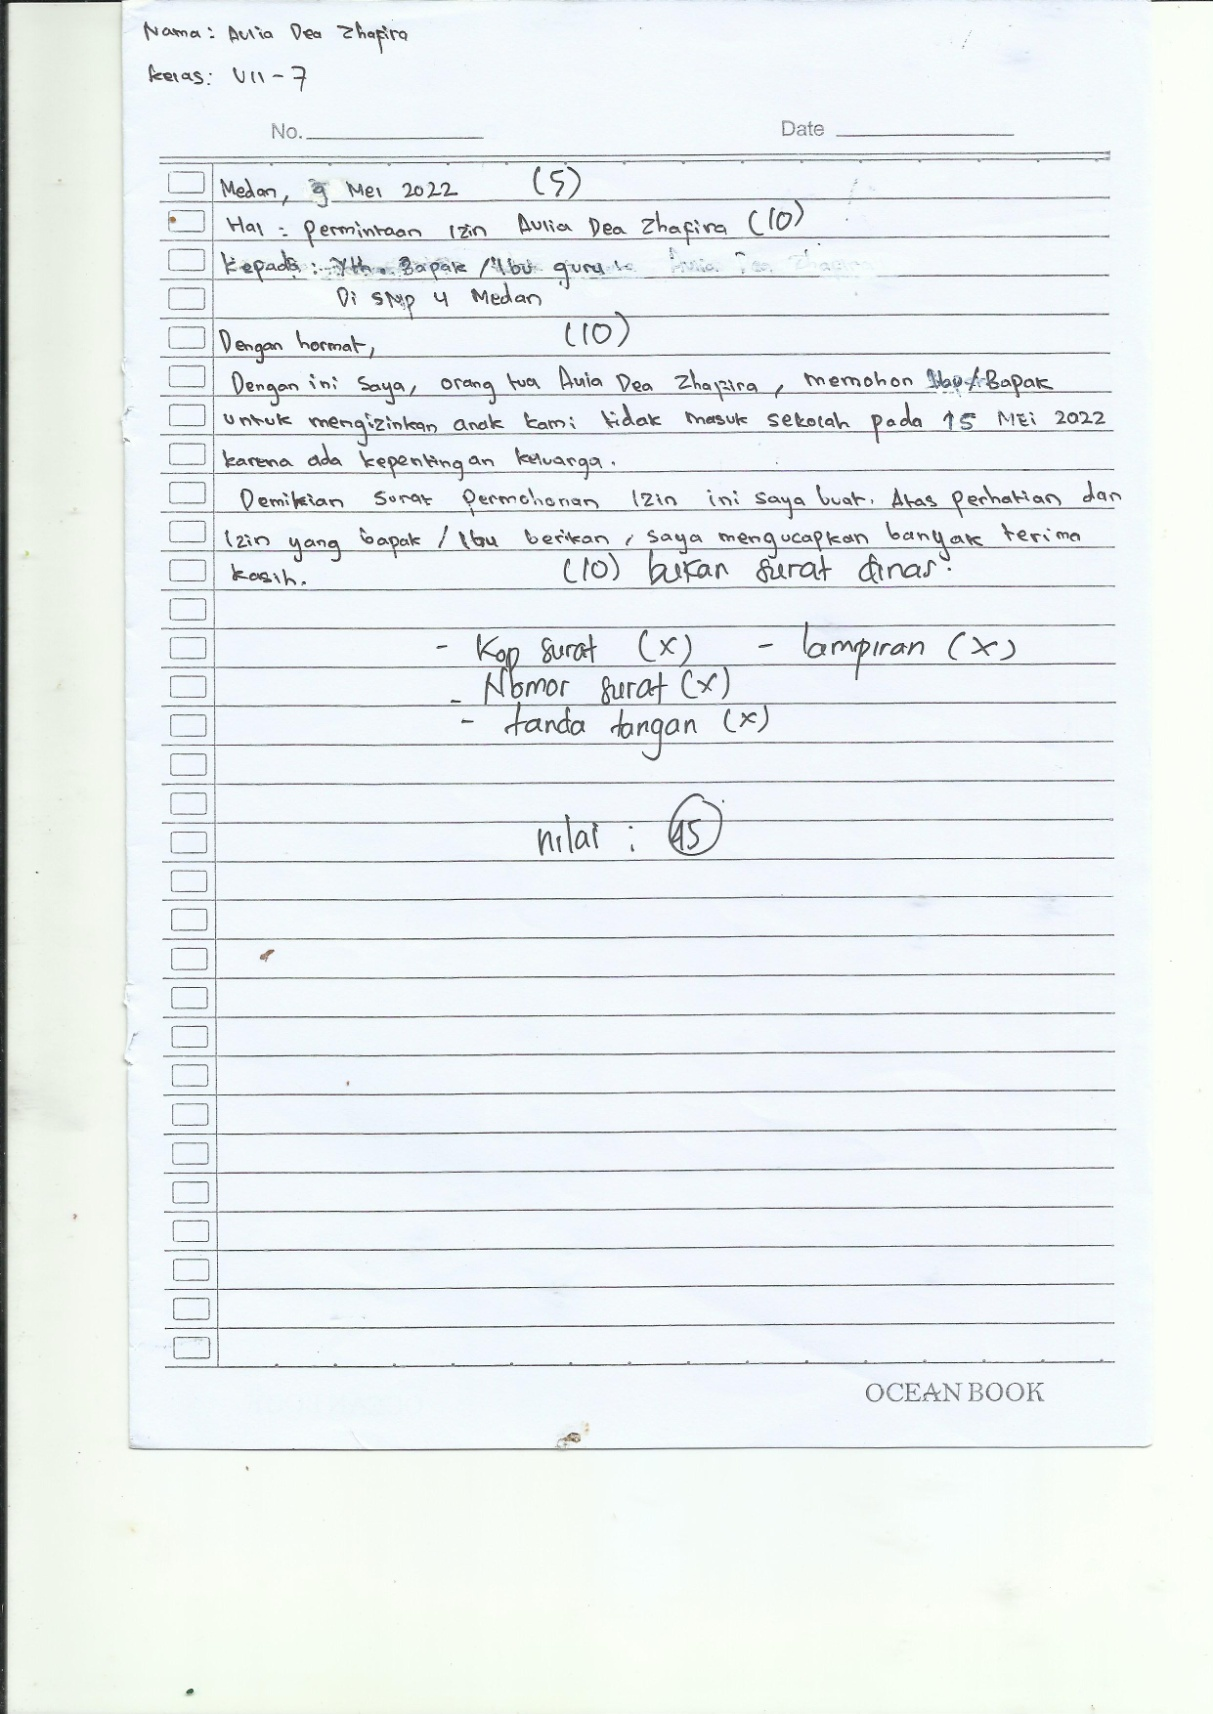 Nama : Aulia Dea Zhafira
Kelas : VII - 7
No.
Date
Medan, 9 Mei 2022 (5)
Hal : Permintaan Izin Aulia Dea Zhafira (10)
Kepada : Yth. Bapak / Ibu guru
Di SMP 4 Medan
Dengan hormat, (10)
Dengan ini saya, orang tua Aulia Dea Zhafira, memohon Ibu / Bapak
untuk mengizinkan anak kami tidak masuk sekolah pada 15 MEi 2022
karena ada kepentingan keluarga.
Demikian surat permohonan izin ini saya buat. Atas perhatian dan
Izin yang bapak / Ibu berikan, saya mengucapkan banyak terima
kasih. (10) bukan surat dinas.
- Kop surat (x) - lampiran (x)
- Nomor surat (x)
- tanda tangan (x)
nilai : 45
OCEAN BOOK